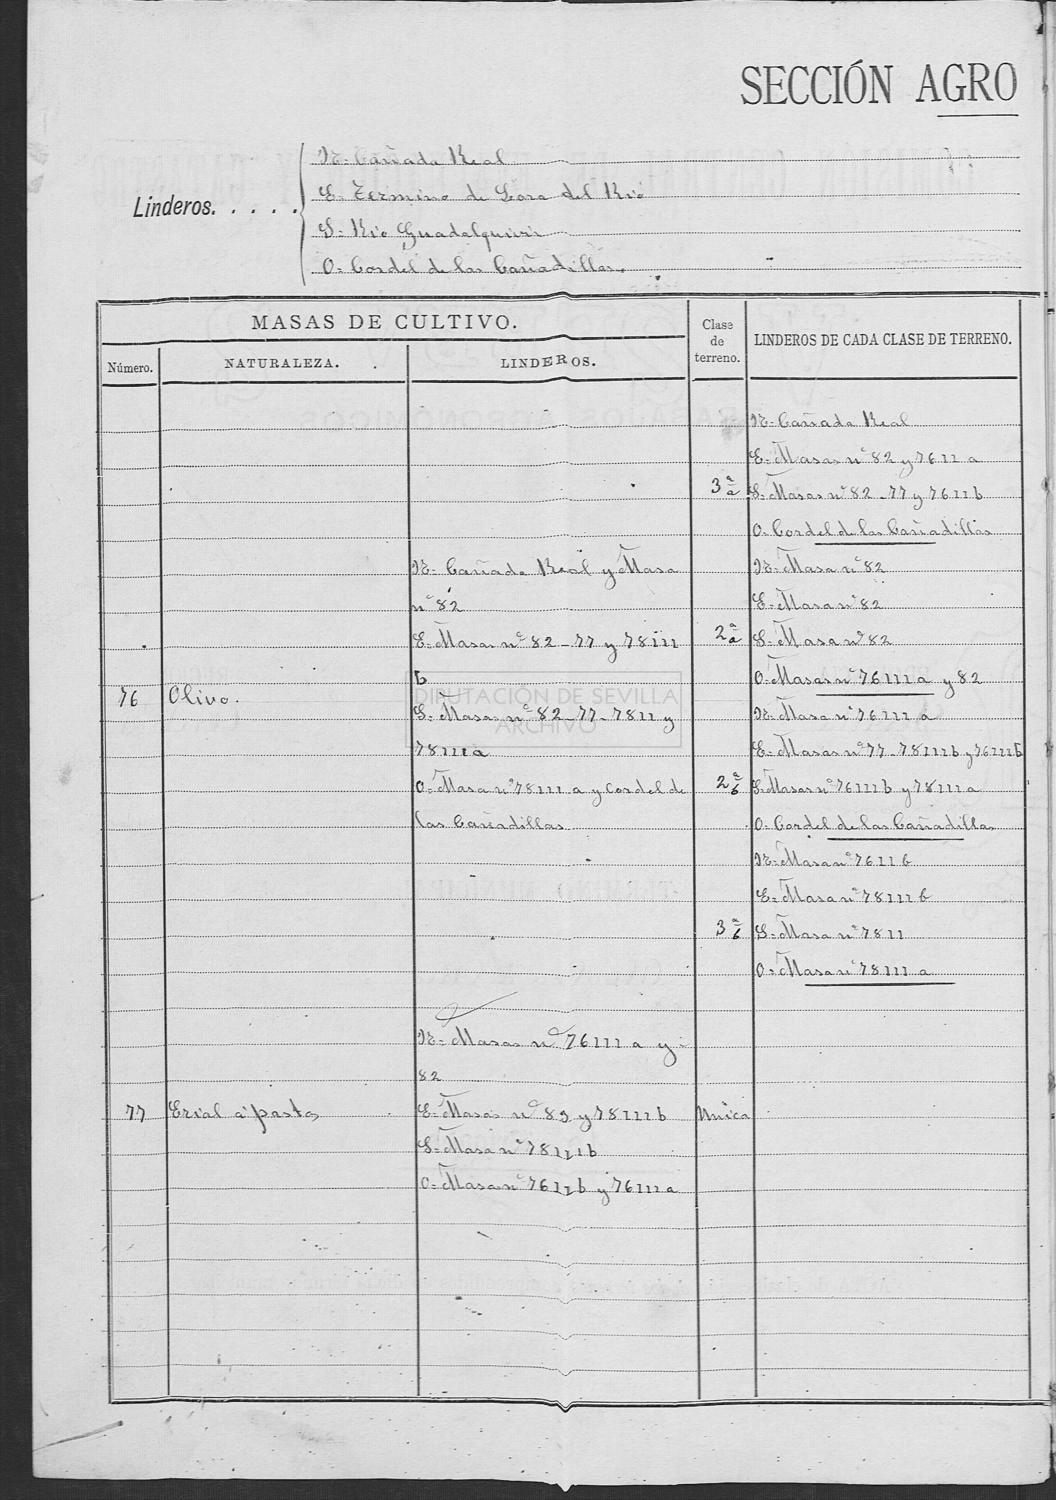 SECCIÓN AGRO
Linderos. . . . .
N- Cañada Real
E- Termino de Lora del Rio
S- Rio Guadalquivir
O- Cordel de las Cañadillas.
MASAS DE CULTIVO.
Clase de terreno.
LINDEROS DE CADA CLASE DE TERRENO.
Número.
NATURALEZA.
LINDEROS.
N- Cañada Real
E- Masas nº 82 y 76 II a
3ª a
S- Masas nº 82 - 77 y 76 II b
O- Cordel de las Cañadillas
N- Cañada Real y Masa
nº 82
E- Masas nº 82 - 77 y 78 III
b
S- Masas nº 82 - 77 - 78 II y
78 III a
O- Masa nº 78 III a y Cordel de
las Cañadillas
76
Olivo.
N- Masa nº 82
E- Masa nº 82
2ª a
S- Masa nº 82
O- Masas nº 76 III a y 82
N- Masa nº 76 III a
E- Masas nº 77 - 78 III b y 76 III b
2ª b
S- Masas nº 76 III b y 78 III a
O- Cordel de las Cañadillas
N- Masa nº 76 II b
E- Masa nº 78 III b
3ª b
S- Masa nº 78 II
O- Masa nº 78 III a
N- Masas nº 76 III a y
82
77
Erial á pastos
E- Masas nº 82 y 78 III b
Unica
S- Masa nº 78 III b
O- Masas nº 76 II b y 76 III a
DIPUTACIÓN DE SEVILLA
ARCHIVO